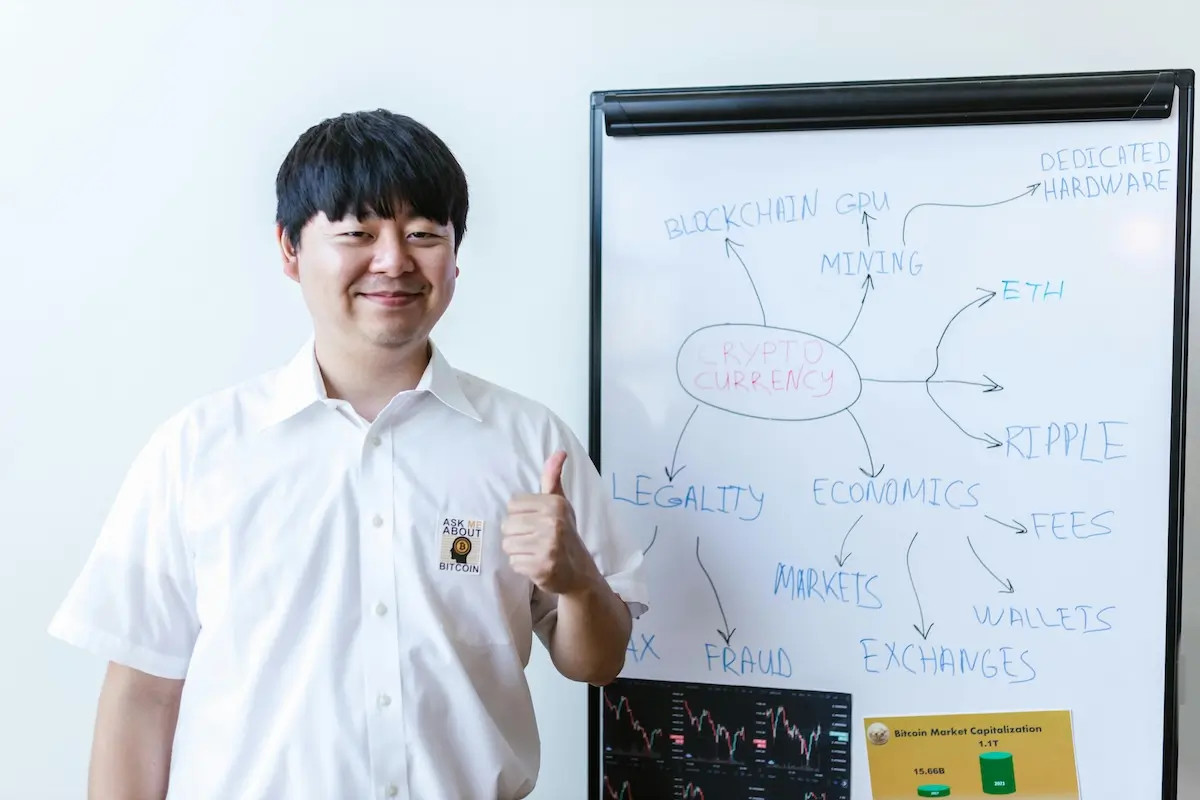 DEDICATED
HARDWARE
BLOCKCHAIN
GPU
MINING
ETH
CRYPTO
CURRENCY
RIPPLE
LEGALITY
ECONOMICS
FEES
MARKETS
WALLETS
AX
FRAUD
EXCHANGES
ASK ME
ABOUT
BITCOIN
Bitcoin Market Capitalization
1.1T
15.66B
2021